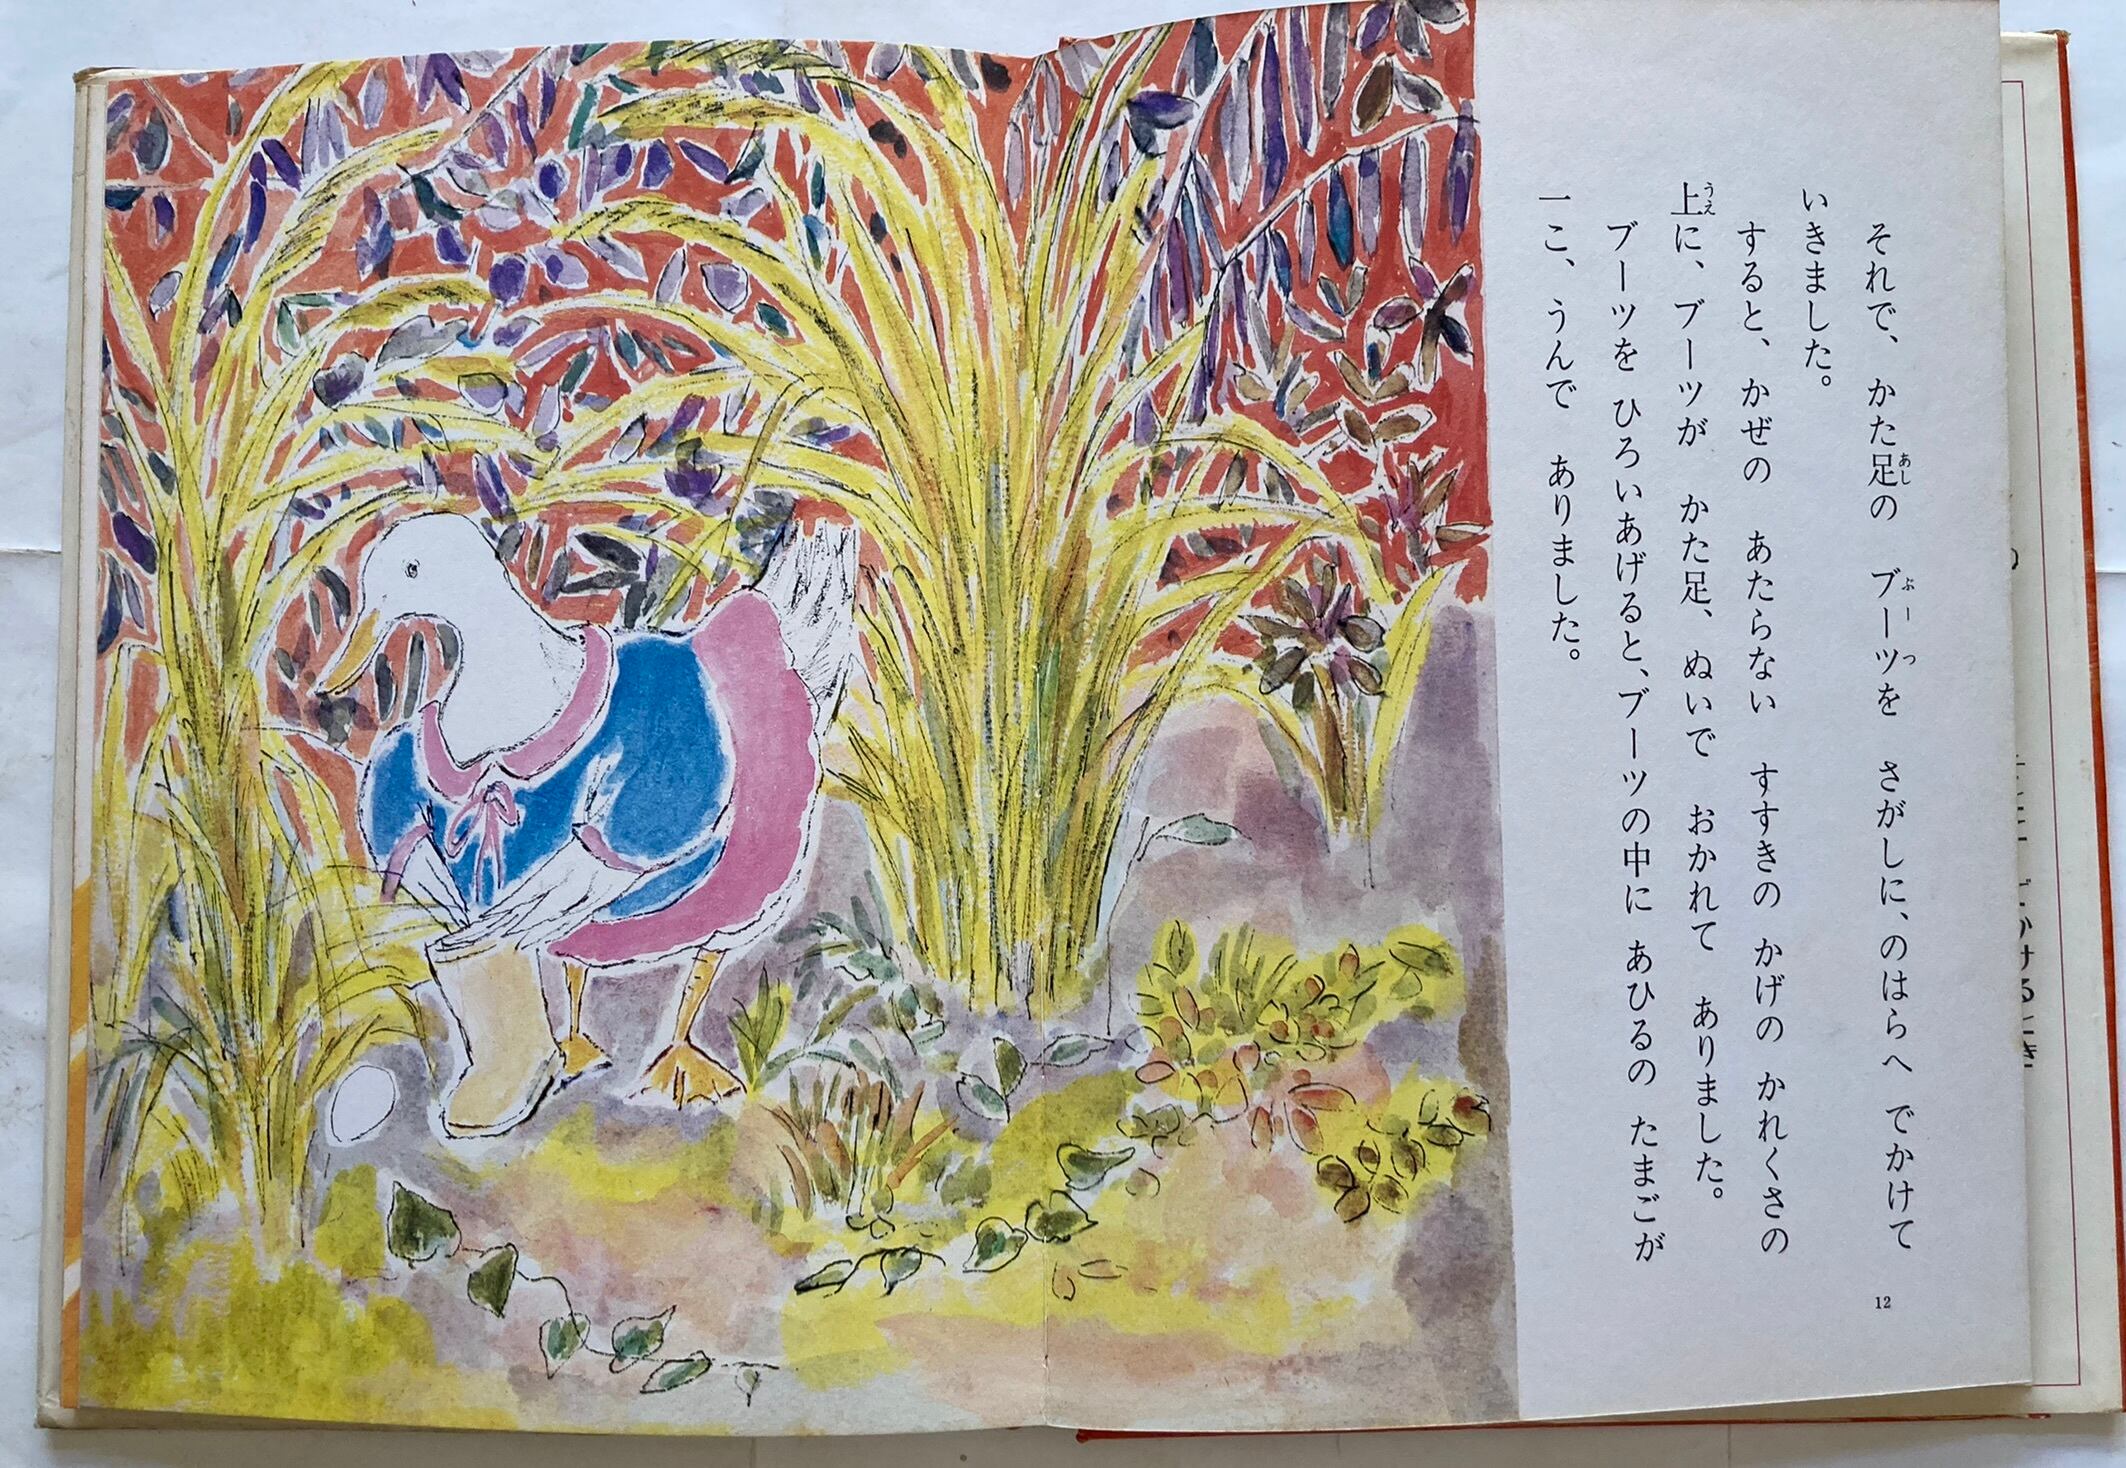 それで、かた足の ブーツを さがしに、のはらへ でかけて
いきました。
すると、かぜの あたらない すすきの かげの かれくさの
上に、ブーツが かた足、ぬいで おかれて ありました。
ブーツを ひろいあげると、ブーツの中に あひるの たまごが
一こ、うんで ありました。
12